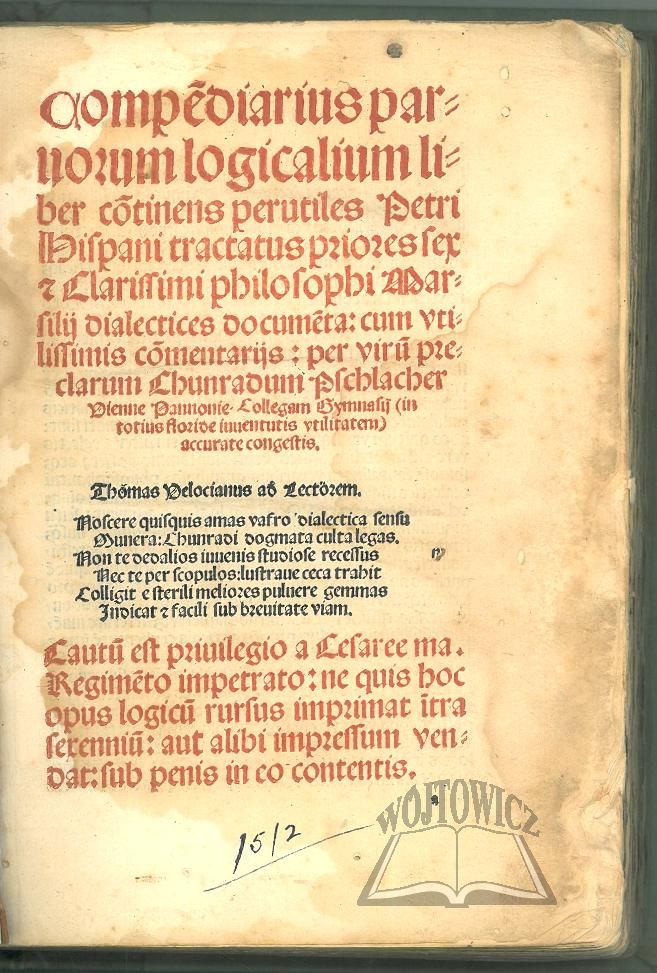 Compēdiarius par⸗
uorum logicalium li⸗
ber cōtinens perutiles Petri
Hispani tractatus priores sex
⁊ Clarissimi philosophi Mar⸗
silij dialectices documēta: cum vti⸗
lissimis cōmentarijs : per virū pre⸗
clarum Chunradum Pschlacher
Vienne Pannonie. Collegam Gymnasij (in
totius floride iuuentutis vtilitatem)
accurate congestis.
Thomas Velocianus ad Lectorem.
Noscere quisquis amas vafro dialectica sensu
Munera: Chunradi dogmata culta legas.
Non te dedalios iuuenis studiose recessus
Nec te per scopulos: lustraue ceca trahit
Colligit e sterili meliores puluere gemmas
Indicat ⁊ facili sub breuitate viam.
Cautū est priuilegio a Cesaree ma.
Regimēto impetrato: ne quis hoc
opus logicū rursus imprimat ītra
sexenniū: aut alibi impressum ven⸗
dat: sub penis in eo contentis.
1512
WÓJTOWICZ